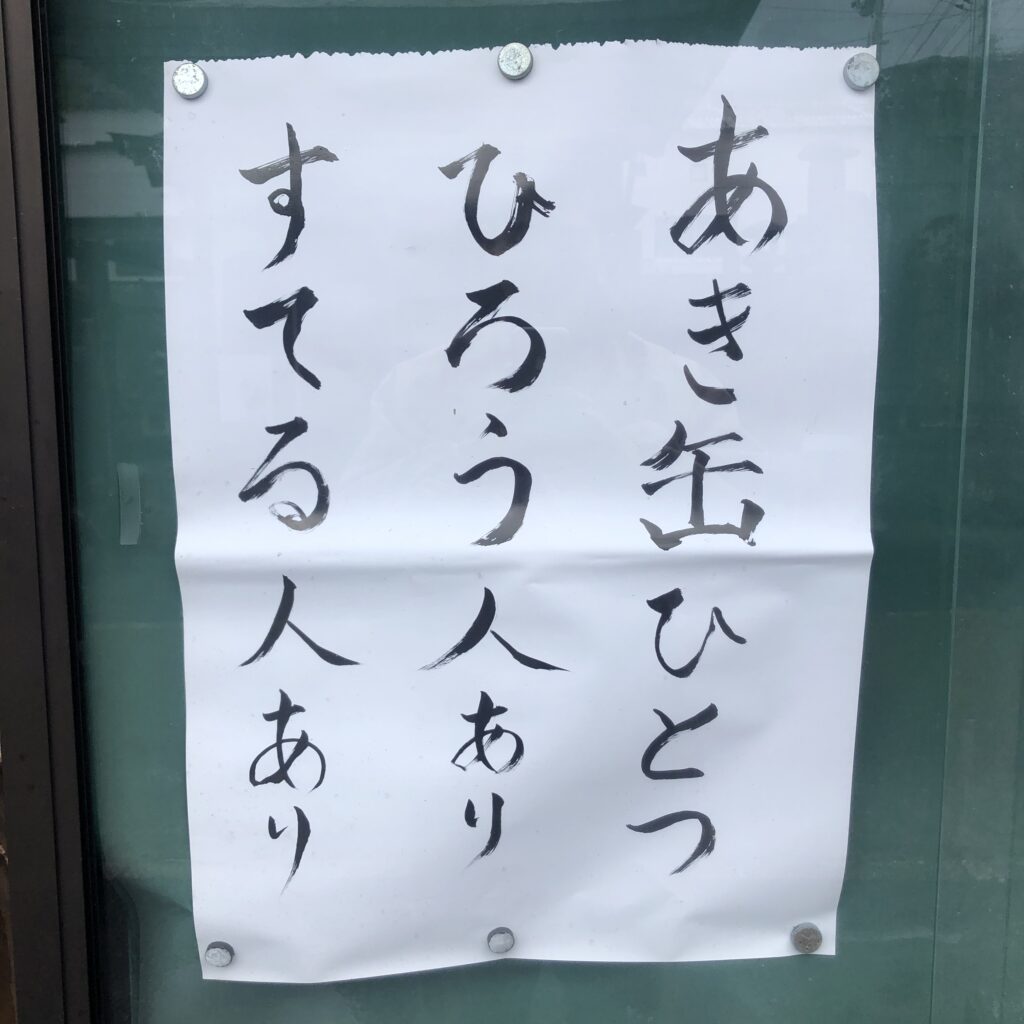 あき缶ひとつ
ひろう人あり
すてる人あり